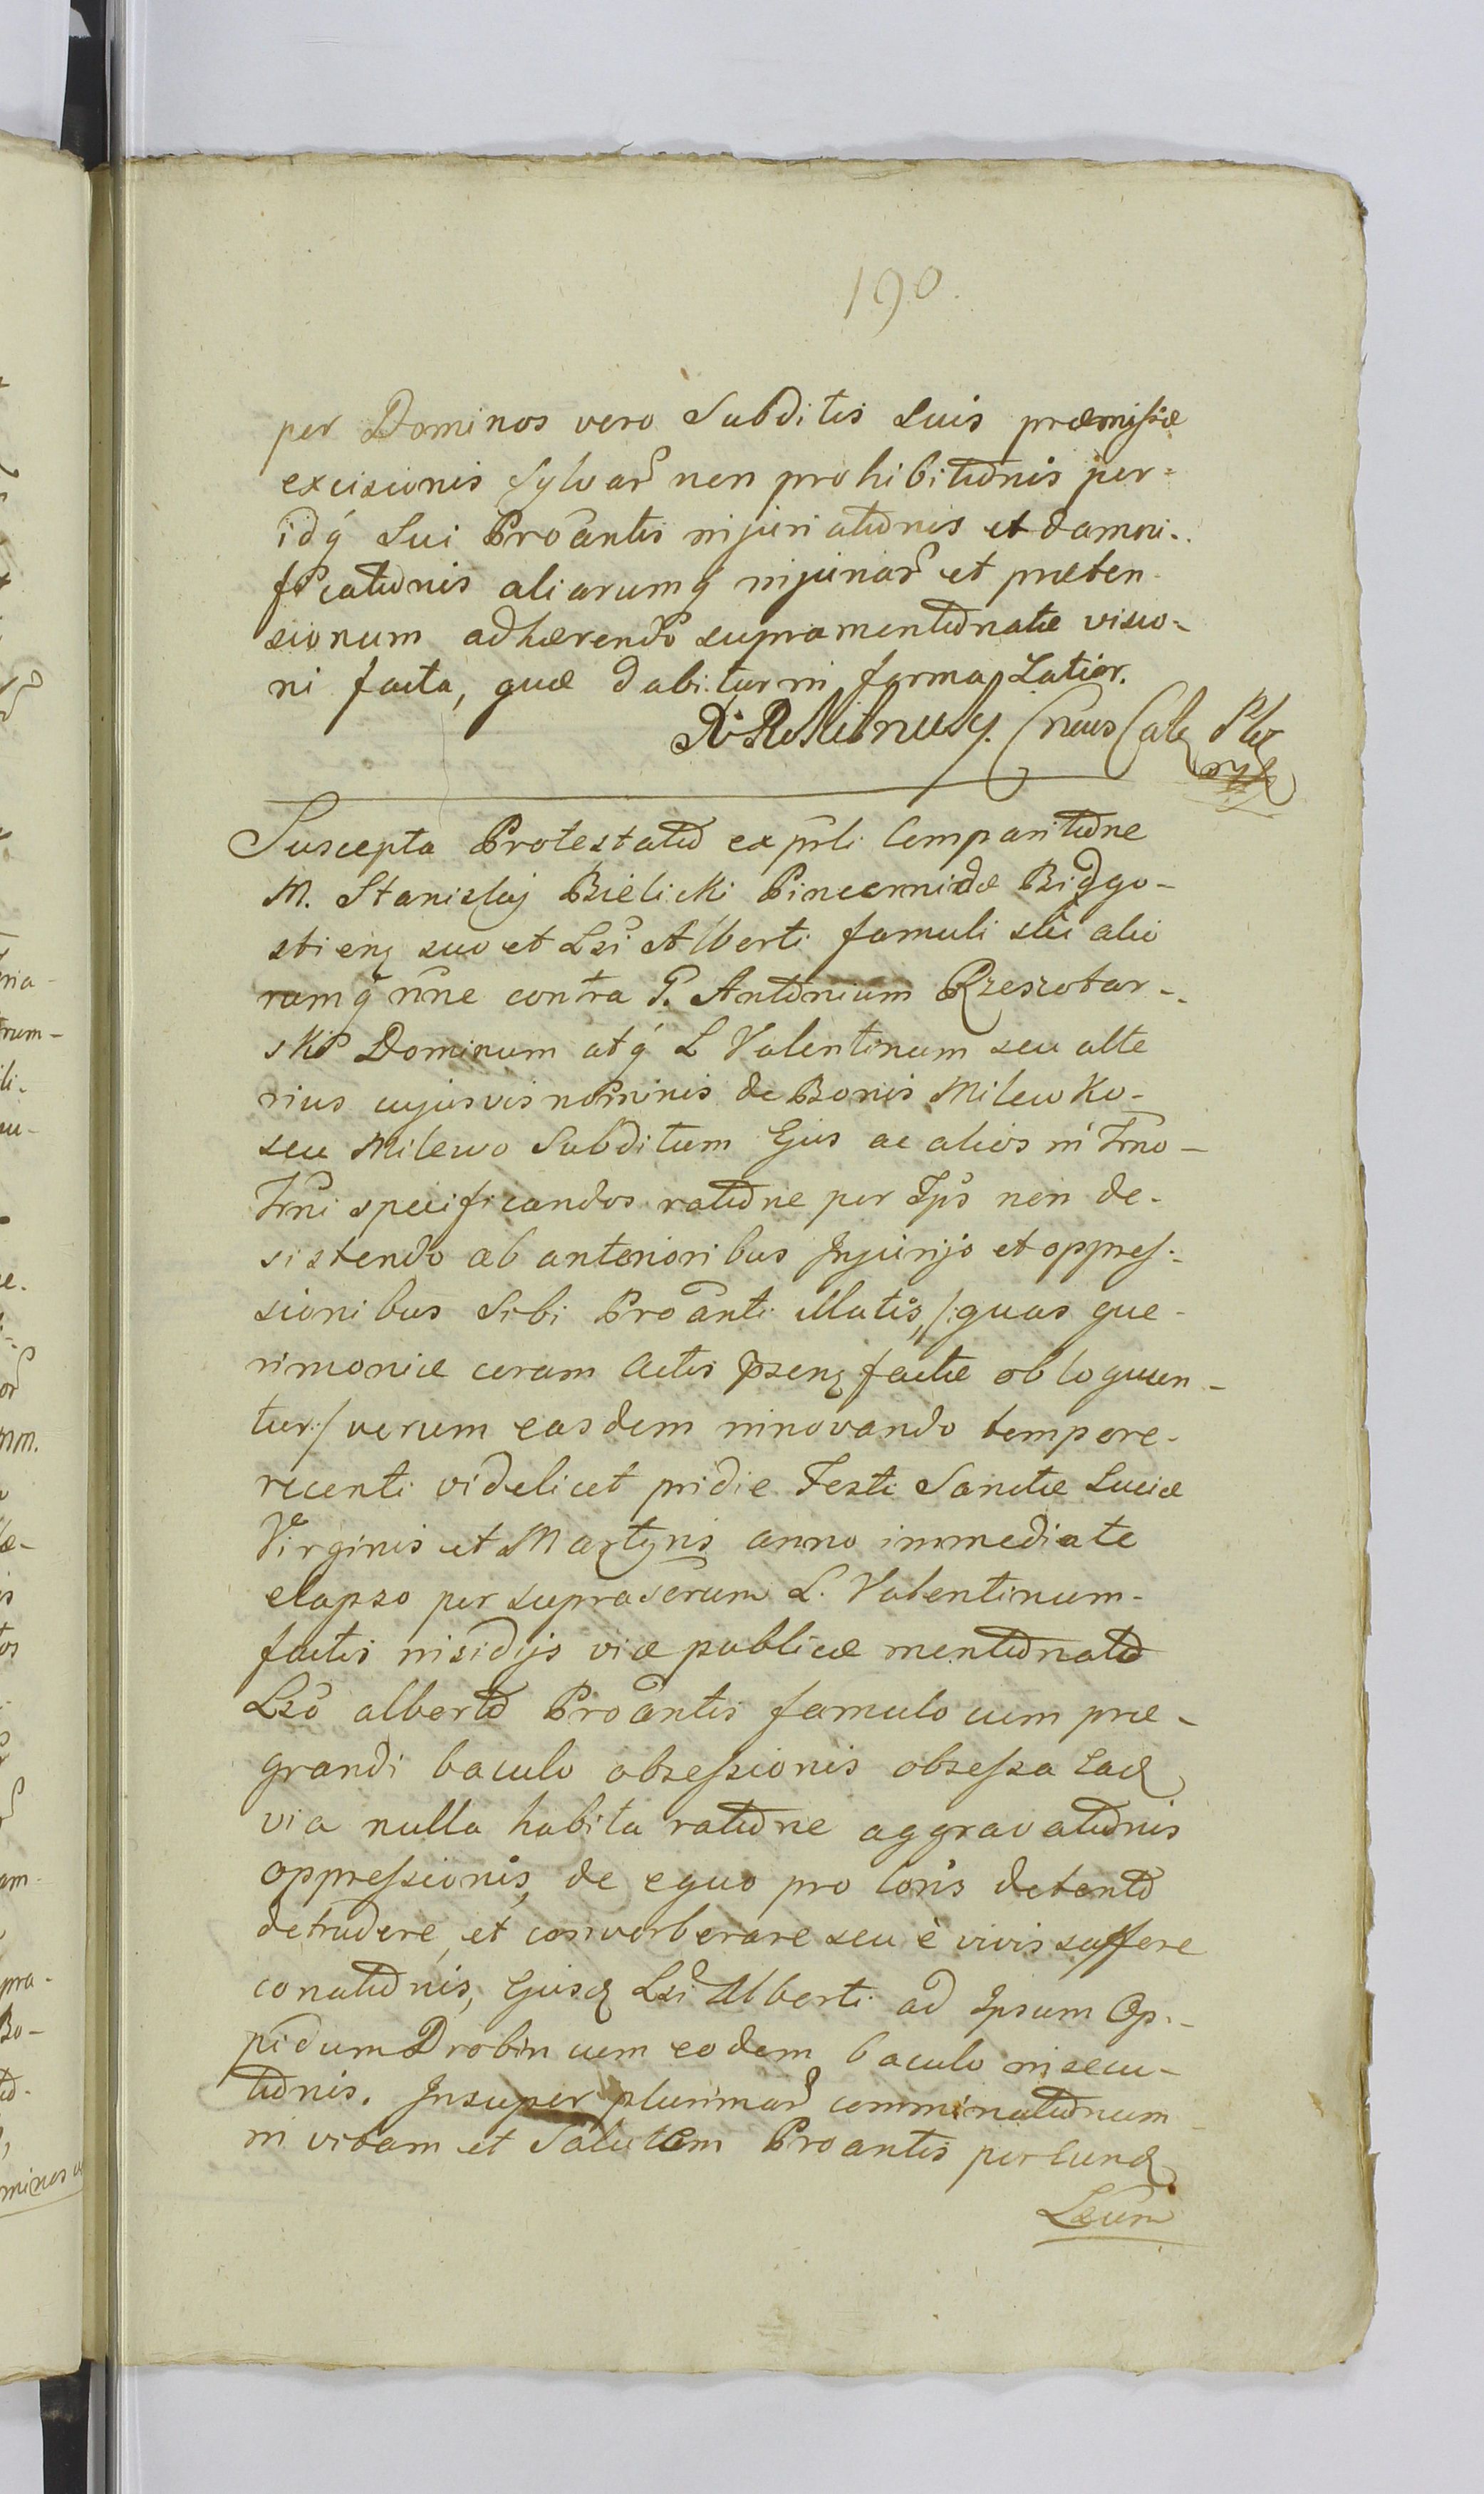 190.
per Dominos vero Subditis Suis præmissæ
excisionis Sylvar non prohibitionis per=
idq́ Sui Proantis injuriationis et damni-
ficationis aliarumq́ injuriar et præten-
sionum adhærendo supramentionatæ visio-
ni facta, quæ dabitur in forma Latior.
Suscepta Protestatio ex pnli Comparitione
M. Stanislaj Bielicki Pincernidæ Bidgo-
stienq suo et Lsi Alberti famuli sui alio
rumq́ nne contra G. Antonium Rzeszotar-
ski Dominum atq́ L Valentinum seu alte
rius cujusvis nominis de Bonis Milewko-
seu Milewo Subditum Ejus ac alios in Trno-
Trni specificandos ratione per Ips non de-
sistendo ab anterioribus Injurijs et oppres-
sionibus Sibi Proanti illatis, /:quas que-
rimoniæ coram Actis pzenq factæ obloquun-
tur:/ verum easdem innovando tempore-
recenti videlicet pridie Festi Sanctæ Luciæ
Virginis et Martyris anno immediate
elapso per supraserum L. Valentinum-
factis insidijs viæ publicæ mentionato
Lso alberto Proantis famulo cum præ-
grandi baculo obsessionis obsessa eaq
via nulla habita ratione aggravationis
oppressionis, de equo pro loris detento
detrudere, et converberare seu è vivis suffere
conationis, Ejusq Lsi Alberti ad Ipsum Op-
pidum Drobin cum eodem baculo insecu-
tionis. Insuper plurimar comminationum
in vitam et Salutem Proantis per eunq
Lsum